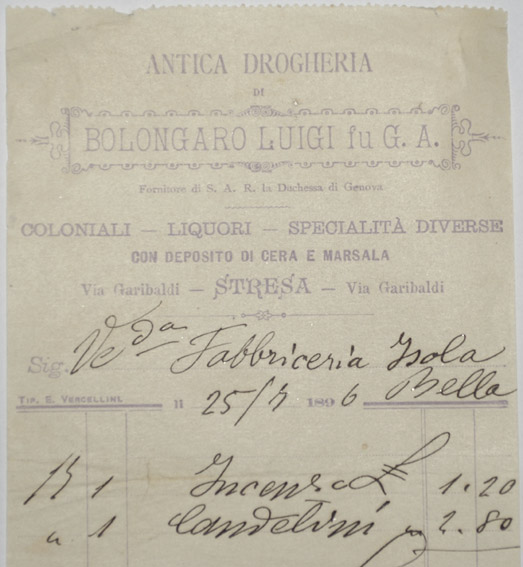 ANTICA DROGHERIA
DI
BOLONGARO LUIGI fu G. A.
Fornitore di S. A. R. la Duchessa di Genova
COLONIALI – LIQUORI – SPECIALITÀ DIVERSE
CON DEPOSITO DI CERA E MARSALA
Via Garibaldi – STRESA – Via Garibaldi
Sig. Veda Fabbriceria Isola
Bella
TIP. E. VERCELLINI. Il 25/7 1896
1 Incenso £ 1.20
" 1 Candelini " 2.80